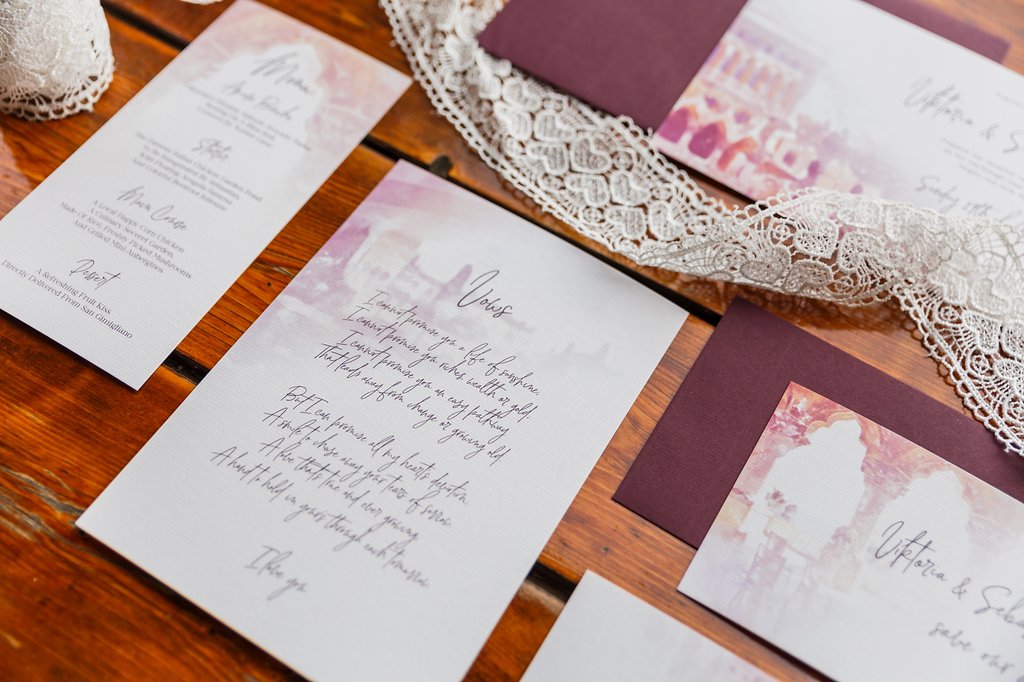 Menu
Starter
Main Course
A Local Happy Corn Chicken
A Culinary Secret Garden,
Made Of Rice, Freshly Picked Mushrooms
And Grilled Mint Aubergines
Dessert
A Refreshing Fruit Kiss
Directly Delivered From San Gimigliano
Vows
I cannot promise you a life of sunshine,
I cannot promise you riches, wealth or gold.
I cannot promise you an easy pathway
That leads away from change or growing old.
But I can promise all my heart's devotion.
A smile to chase away your tears of sorrow
A love that's true and ever growing
A hand to hold in yours through each tomorrow.
I love you
Viktoria & S
Sunday
Viktoria & Seba
save our